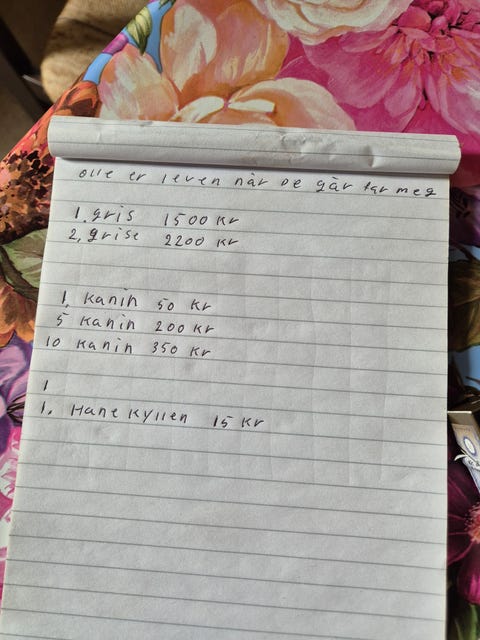 olle er leven når De går far meg
1. gris 1500 Kr
2, grise 2200 Kr
1, Kanin 50 Kr
5 Kanin 200 Kr
10 Kanin 350 Kr
1
1. Hane Kyllen 15 Kr